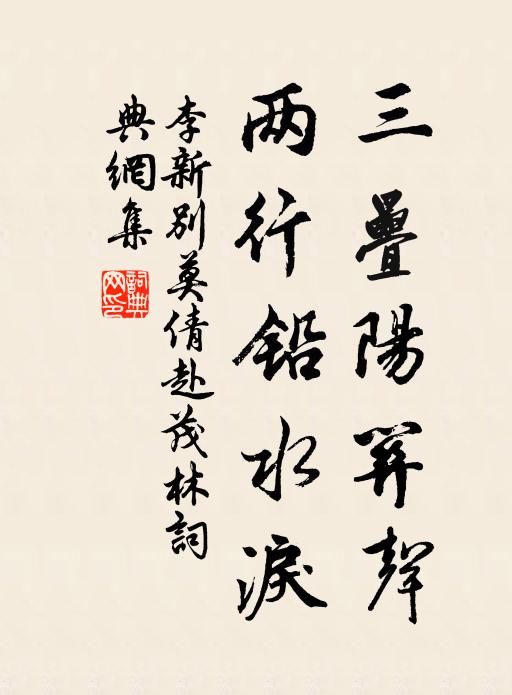 三疊陽関聲
两行鉛水淚
李新别莫倩赴茂林詞
典網集
詞典網印